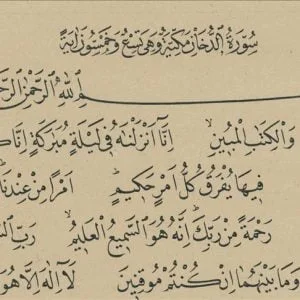 سُورَةُ الدُّخَانِ مَكِّيَّةٌ وَهِىَ تِسْعٌ وَخَمْسُونَ اٰيَةً
اللهِ الرَّحْمٰنِ
وَالْكِتٰبِ الْمُبِينِ اِنَّا اَنْزَلْنٰهُ فِى لَيْلَةٍ مُبٰرَكَةٍ اِنَّا
فِيهَا يُفْرَقُ كُلُّ اَمْرٍ حَكِيمٍ اَمْرًا مِنْ عِنْدِنَا
رَحْمَةً مِنْ رَبِّكَ اِنَّهُ هُوَ السَّمِيعُ الْعَلِيمُ رَبِّ
وَمَا بَيْنَهُمَا اِنْ كُنْتُمْ مُوقِنِينَ لَا اِلٰهَ اِلَّا هُوَ